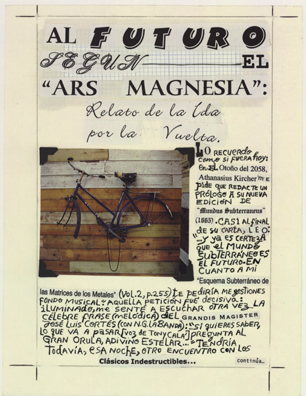 AL FUTURO
SEGUN EL
"ARS MAGNESIA":
Relato de la Ida
por la Vuelta.
LO RECUERDO
como si FUERA hoy:
En el Otoño del 2058,
Athanasius Kircher me
pide que redacte un
PRÓLOGO A SU NUEVA
EDICIÓN DE
"Mundus Subterraneus"
(1665). CASI AL FINAL
DE SU CARTA, LEO:
"— y YA ES CERTEZA
QUE EL MUNDO
SUBTERRÁNEO ES
EL FUTURO. EN
CUANTO A MI
"Esquema Subterráneo de
las Matrices de los Metales" (Vol. 2, p.255) te PEDIRÍA ME GESTIONES
FONDO MUSICAL". AQUELLA PETICIÓN FUE DECISIVA:
iluminado, me senté a ESCUCHAR OTRA VEZ LA
CÉLEBRE FRASE (MELÓDICA) DEL GRANDIS MAGISTER
JOSÉ LUIS CORTÉS (CON NG LA BANDA): "SI QUIERES SABER,
LO QUE VA A PASAR [VOZ DE TONY CALÁ] PREGUNTA AL
GRAN ORULA, ADIVINO ESTELAR... TENDRÍA
TODAVÍA, ESA NOCHE, OTRO ENCUENTRO CON LOS
Clásicos Indestructibles... continúa.